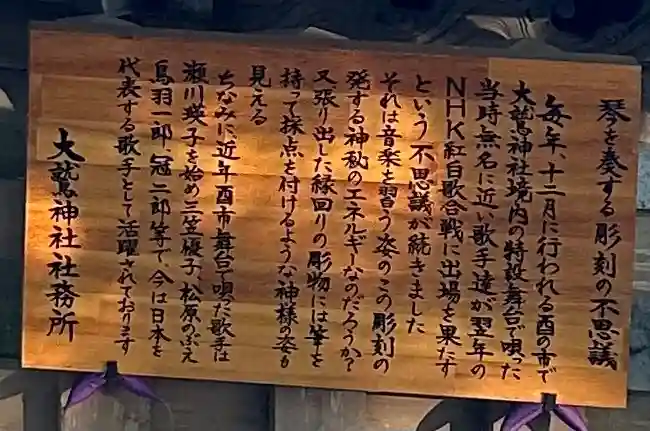 琴を奏する彫刻の不思議
毎年、十二月に行われる酉の市で
大鷲神社境内の特設舞台で唄った
当時無名に近い歌手達が翌年の
NHK紅白歌合戦に出場を果たす
という不思議が続きました
それは音楽を習う姿のこの彫刻の
発する神秘のエネルギーなのだろうか?
又張り出した縁回りの彫物には筆を
持って採点を付けるような神様の姿も
見える
ちなみに近年酉市舞台で唄った歌手は
瀬川瑛子を始め三笠優子、松原のぶえ
鳥羽一郎、冠二郎等で、今は日本を
代表する歌手として活躍されております
大鷲神社社務所